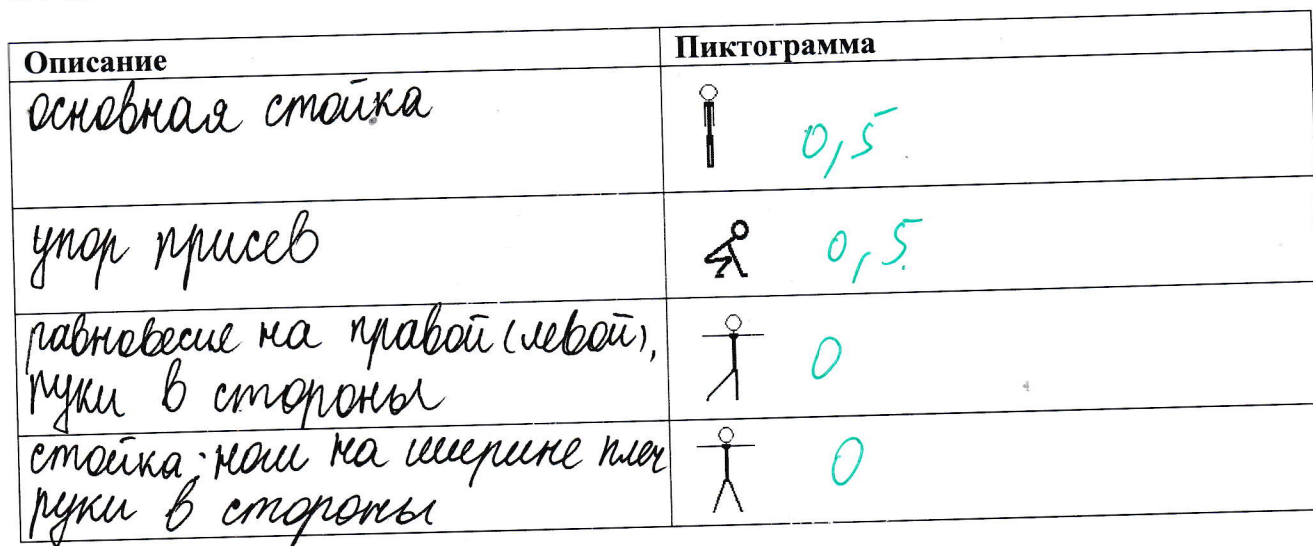 Описание
Пиктограмма
основная стойка
0,5
упор присев
0,5
равновесие на правой (левой),
руки в стороны
0
стойка; ноги на ширине плеч
руки в стороны
0